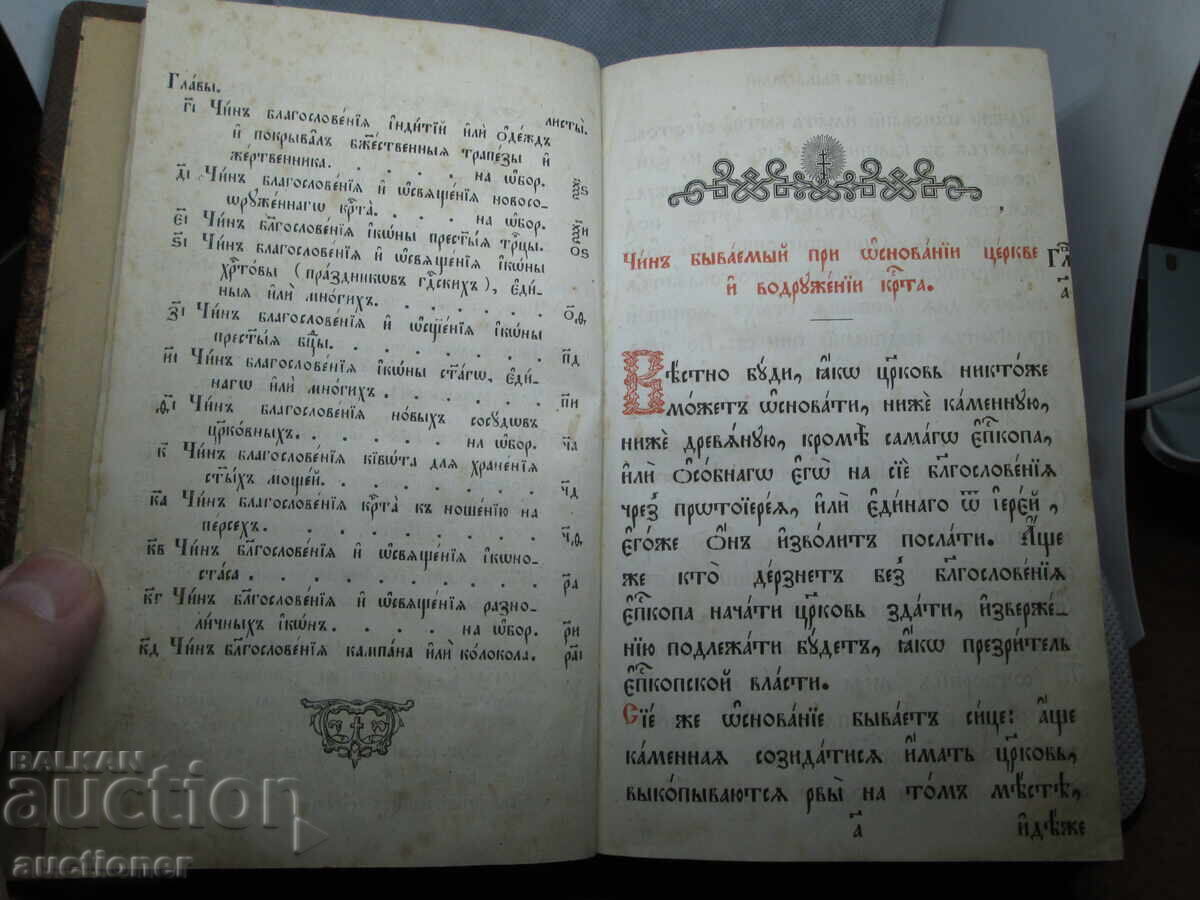 Главы.
листы.
г҃і Чи́нъ благослове́нїѧ і҆нди́тїй и҆лѝ ѻ҆де́ждъ
и҆ покрыва́лъ бж҃е́ственныѧ трапе́зы и҆
же́ртвенника. . . . . на ѡ҆бор. ѯ҃ѕ
д҃і Чи́нъ благослове́нїѧ и҆ ѡ҆свѧще́нїѧ новосо-
ѡрꙋже́ннагѡ крⷭ҇та̀. . . . на ѡ҆бор. ѯ҃и
є҃і Чи́нъ бл҃гослове́нїѧ і҆кѡ́ны прест҃ы́ѧ трⷪ҇цы. ѻ҃ѕ
ѕ҃і Чи́нъ благослове́нїѧ и҆ ѡ҆свѧще́нїѧ і҆кѡ́ны
хрⷭ҇то́вы (пра́здникѡвъ гдⷭ҇скихъ), є҆ди́-
ныѧ и҆лѝ мно́гихъ. . . . . . .
з҃і Чи́нъ благослове́нїѧ и҆ ѡ҆сщ҃е́нїѧ і҆кѡ́ны
прест҃ы́ѧ бц҃ы. . . . . . . п҃д
и҃і Чи́нъ благослове́нїѧ і҆кѡ́ны ст҃а́гѡ, є҆ди́-
нагѡ и҆лѝ мно́гихъ. . . . . . п҃и
ѳ҃і Чи́нъ благослове́нїѧ но́выхъ сосꙋ́дѡвъ
црⷪ҇ко́вныхъ. . . . . . на ѡ҆бор. ч҃а
к҃ Чи́нъ благослове́нїѧ кївѡ́та для хране́нїѧ
ст҃ы́хъ моще́й. . . . . . . ч҃д
к҃а Чи́нъ благослове́нїѧ крⷭ҇та̀ къ ноше́нїю на
пе́рсехъ. . . . . . . . ч҃ѳ
к҃в Чи́нъ бл҃гослове́нїѧ и҆ ѡ҆свѧще́нїѧ і҆кѡно-
ста́са . . . . . . . . р҃а
к҃г Чи́нъ бл҃гослове́нїѧ и҆ ѡ҆свѧще́нїѧ разно-
ли́чныхъ і҆кѡ́нъ. . . . . на ѡ҆бор. р҃и
к҃д Чи́нъ бл҃гослове́нїѧ кампа́на и҆лѝ ко́локола. . р҃аі
Чи́нъ быва́емый при ѡ҆снова́нїи це́ркве
и҆ водрꙋже́нїи крⷭ҇та.
Гла
а҃
Вѣ́стно бꙋ́ди, ꙗ҆́кѡ цр҃ковь никто́же
мо́жетъ ѡ҆снова́ти, нижѐ ка́меннꙋю,
нижѐ древѧ́нꙋю, кромѣ̀ сама́гѡ є҆пⷭ҇копа,
и҆лѝ ѻ҆со́бнагѡ є҆гѡ̀ на сїѐ бл҃гослове́нїѧ
чрез̾ прѡтоїере́ѧ, и҆лѝ є҆ди́наго ѿ і҆ере́й,
є҆го́же ѻ҆́нъ и҆зво́литъ посла́ти. А҆́ще
же кто̀ де́рзнетъ без̾ бл҃гослове́нїѧ
є҆пⷭ҇копа нача́ти цр҃ковь зда́ти, и҆зверже́-
нїю подлежа́ти бꙋ́детъ, ꙗ҆́кѡ презри́тель
є҆пⷭ҇копской вла́сти.
Сїе́ же ѡ҆снова́нїе быва́етъ си́це: а҆́ще
ка́менная созида́тисѧ и҆́мать цр҃ковь,
выко́пываютсѧ рвы̀ на то́мъ мѣ́стѣ,
а҃ и҆дѣ́же
BALKAN
auction
auctioner